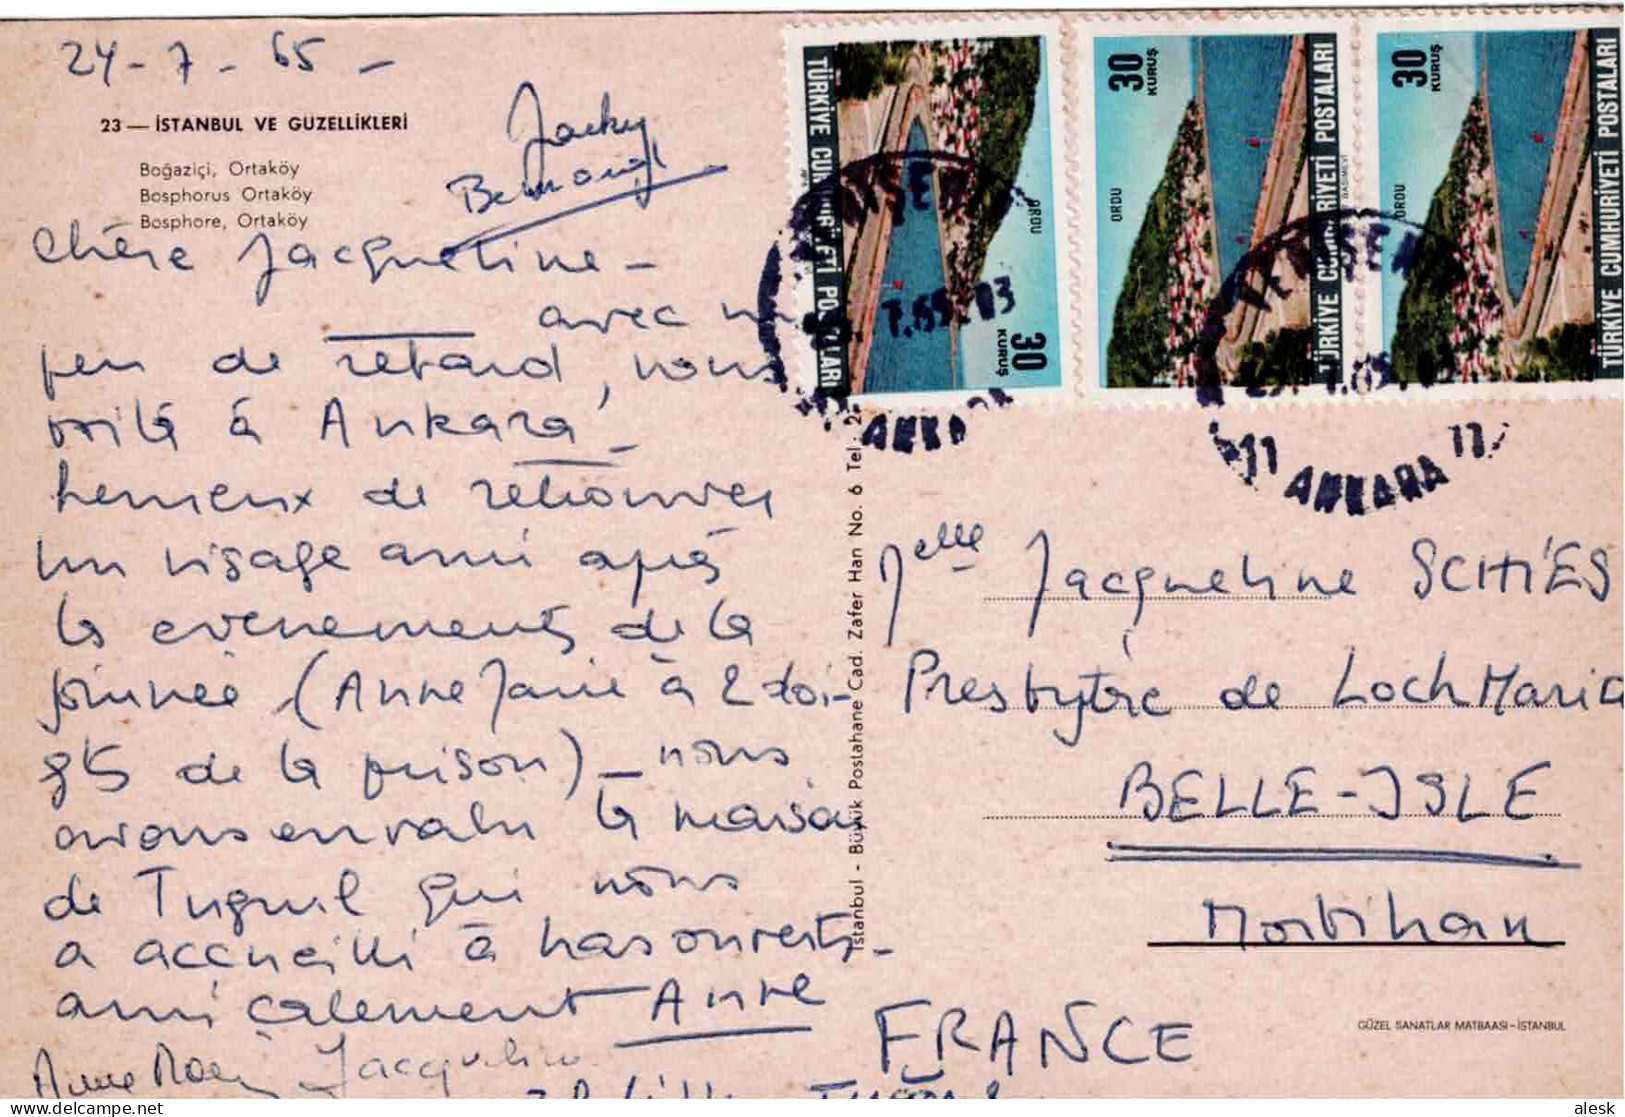 24-7-65-
23 — İSTANBUL VE GUZELLİKLERİ
Boğaziçi, Ortaköy
Bosphorus Ortaköy
Bosphore, Ortaköy
Jacky
Chère Jacqueline -
avec un
peu de retard, nous
voilà à Ankara -
heureux de retrouver
un visage ami après
les evènements de la
journée (Anne Marie à 2 doi-
gts de la prison) - nous
avons envahi la maison
de Tugrul qui nous
a accueilli à bras ouverts -
amicalement Anne
Anne Mary Jacqueline
TÜRKİYE CUMHURİYETİ POSTALARI
ORDU
30 KURUŞ
30 KURUŞ
ORDU
TÜRKİYE CUMHURİYETİ POSTALARI
30 KURUŞ
ORDU
TÜRKİYE CUMHURİYETİ POSTALARI
YENİŞEHİR
ANKARA
YENİŞEHİR
11 ANKARA 11
İstanbul - Büyük Postahane Cad. Zafer Han No. 6 Tel: 2
Melle Jacqueline SCHIÉS
Presbytère de LochMaria
BELLE-ISLE
Morbihan
FRANCE
GÜZEL SANATLAR MATBAASI-İSTANBUL
alesk